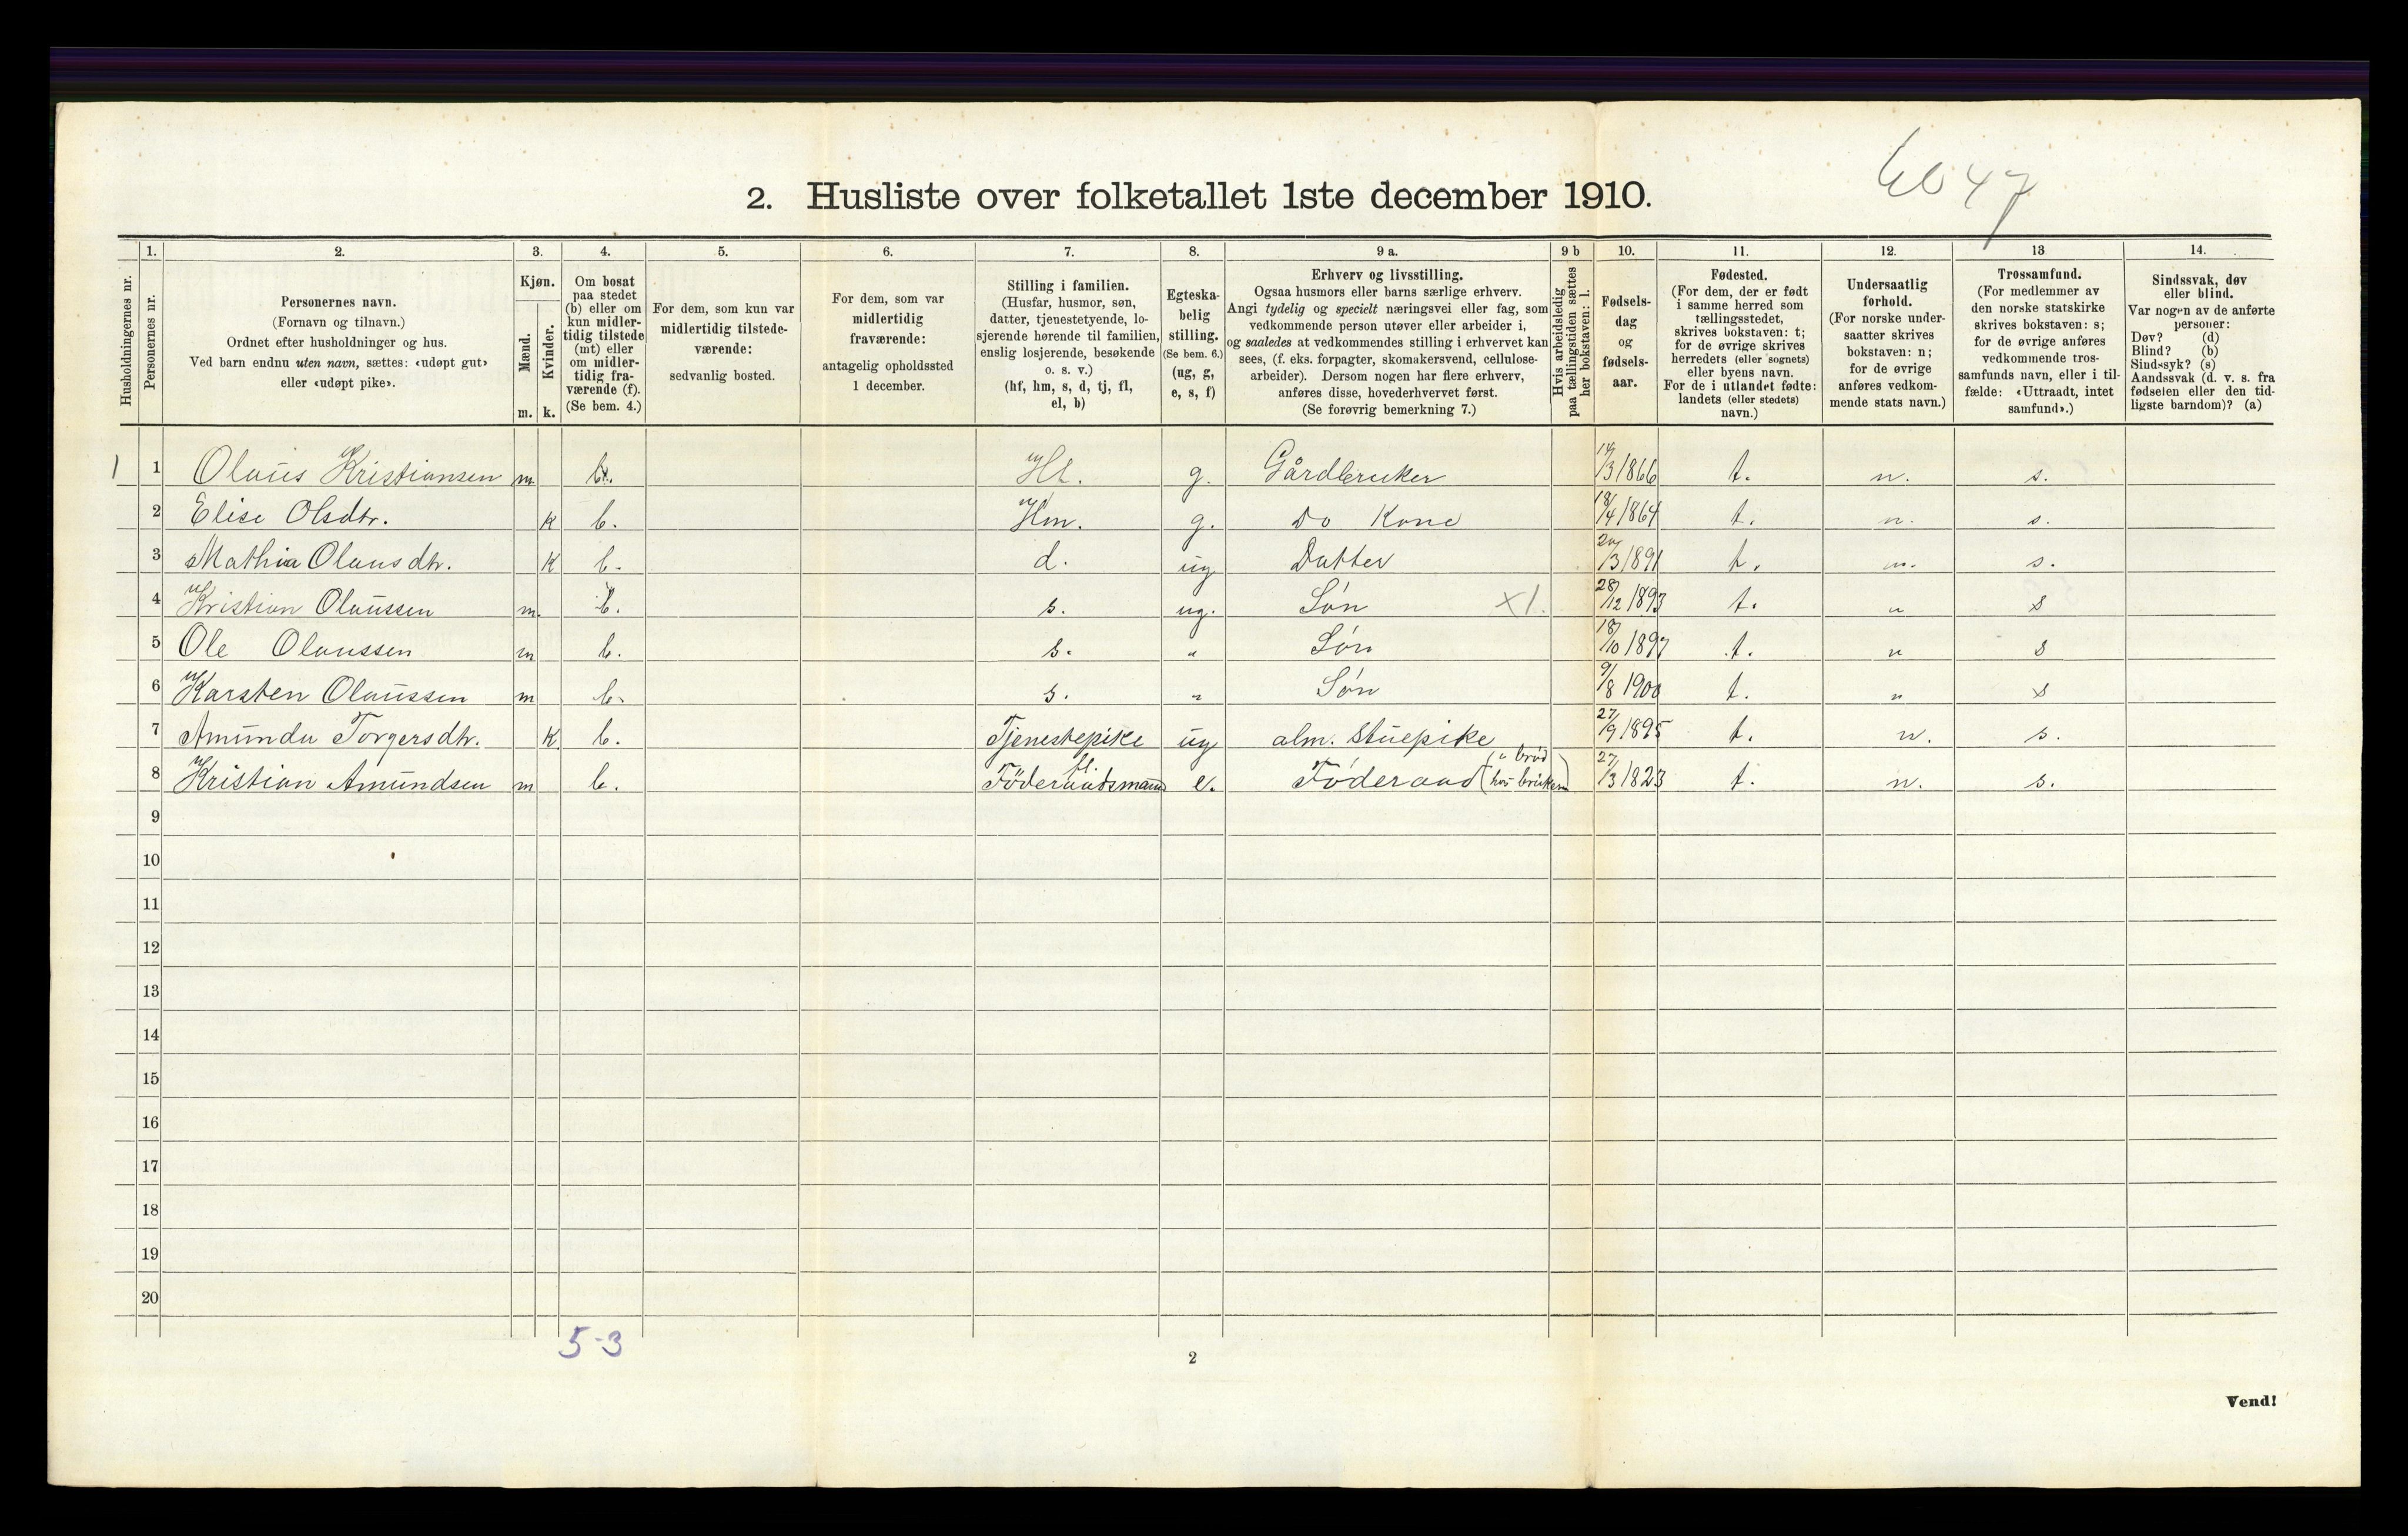 6047
2. Husliste over folketallet 1ste december 1910.
Husholdningernes nr.
1. Personernes nr.
2. Personernes navn.
(Fornavn og tilnavn.)
Ordnet efter husholdninger og hus.
Ved barn endnu uten navn, sættes: «udøpt gut»
eller «udøpt pike».
3. Kjøn.
Mænd. m.
Kvinder. k.
4. Om bosat
paa stedet
(b) eller om
kun midler-
tidig tilstede
(mt) eller
om midler-
tidig fra-
værende (f).
(Se bem. 4.)
5. For dem, som kun var
midlertidig tilstede-
værende:
sedvanlig bosted.
6. For dem, som var
midlertidig
fraværende:
antagelig opholdssted
1 december.
7. Stilling i familien.
(Husfar, husmor, søn,
datter, tjenestetyende, lo-
sjerende hørende til familien,
enslig losjerende, besøkende
o. s. v.)
(hf, hm, s, d, tj, fl,
el, b)
8. Egteska-
belig
stilling.
(Se bem. 6.)
(ug, g,
e, s, f)
9 a. Erhverv og livsstilling.
Ogsaa husmors eller barns særlige erhverv.
Angi tydelig og specielt næringsvei eller fag, som
vedkommende person utøver eller arbeider i,
og saaledes at vedkommendes stilling i erhvervet kan
sees, (f. eks. forpagter, skomakersvend, cellulose-
arbeider). Dersom nogen har flere erhverv,
anføres disse, hovederhvervet først.
(Se forøvrig bemerkning 7.)
9 b Hvis arbeidsledig
paa tællingstiden sættes
her bokstaven: l.
10. Fødsels-
dag
og
fødsels-
aar.
11. Fødested.
(For dem, der er født
i samme herred som
tællingsstedet,
skrives bokstaven: t;
for de øvrige skrives
herredets (eller sognets)
eller byens navn.
For de i utlandet fødte:
landets (eller stedets)
navn.)
12. Undersaatlig
forhold.
(For norske under-
saatter skrives
bokstaven: n;
for de øvrige
anføres vedkom-
mende stats navn.)
13 Trossamfund.
(For medlemmer av
den norske statskirke
skrives bokstaven: s;
for de øvrige anføres
vedkommende tros-
samfunds navn, eller i til-
fælde: «Uttraadt, intet
samfund».)
14. Sindssvak, døv
eller blind.
Var nogen av de anførte
personer:
Døv? (d)
Blind? (b)
Sindssyk? (s)
Aandssvak (d. v. s. fra
fødselen eller den tid-
ligste barndom)? (a)
1 1 Olaüs Kristiansen m. b. Hf. g. Gårdbruker 14/3 1866 t. n. s.
2 Elise Olsdtr. K b. Hm. g. Do Kone 18/4 1864 t. n. s.
3 Mathia Olausdtr. K b. d. ug Datter 20/3 1891 t. n. s.
4 Kristian Olaüssen m. b. s. ug. Søn X1. 28/12 1893 t. n s
5 Ole Olaussen m b. s. " Søn 18/10 1897 t. n s
6 Karsten Olaüssen m b. s. " Søn 9/8 1900 t. n s
7 Amünda Torgersdtr. K b. Tjenestepike ug alm. stüepike 27/9 1895 t. n. s.
8 Kristian Amündsen m b. Föderaadsmand fl. e. Föderaad 27/3 1823 t. n. s.
9
10
11
12
13
14
15
16
17
18
19
20
5-3
2
Vend!